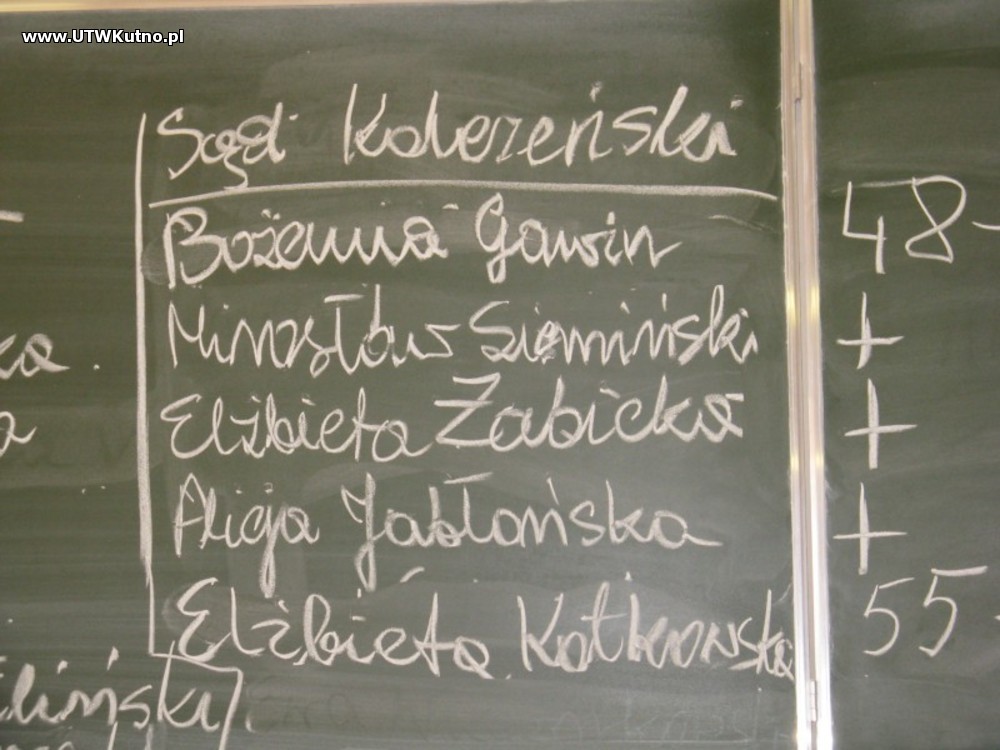 www.UTWKutno.pl
Sąd Koleżeński
Bożenna Gawin 48
Mirosław Siemiński +
Elżbieta Żabicka +
Alicja Jabłońska +
Elżbieta Kotkowska 55